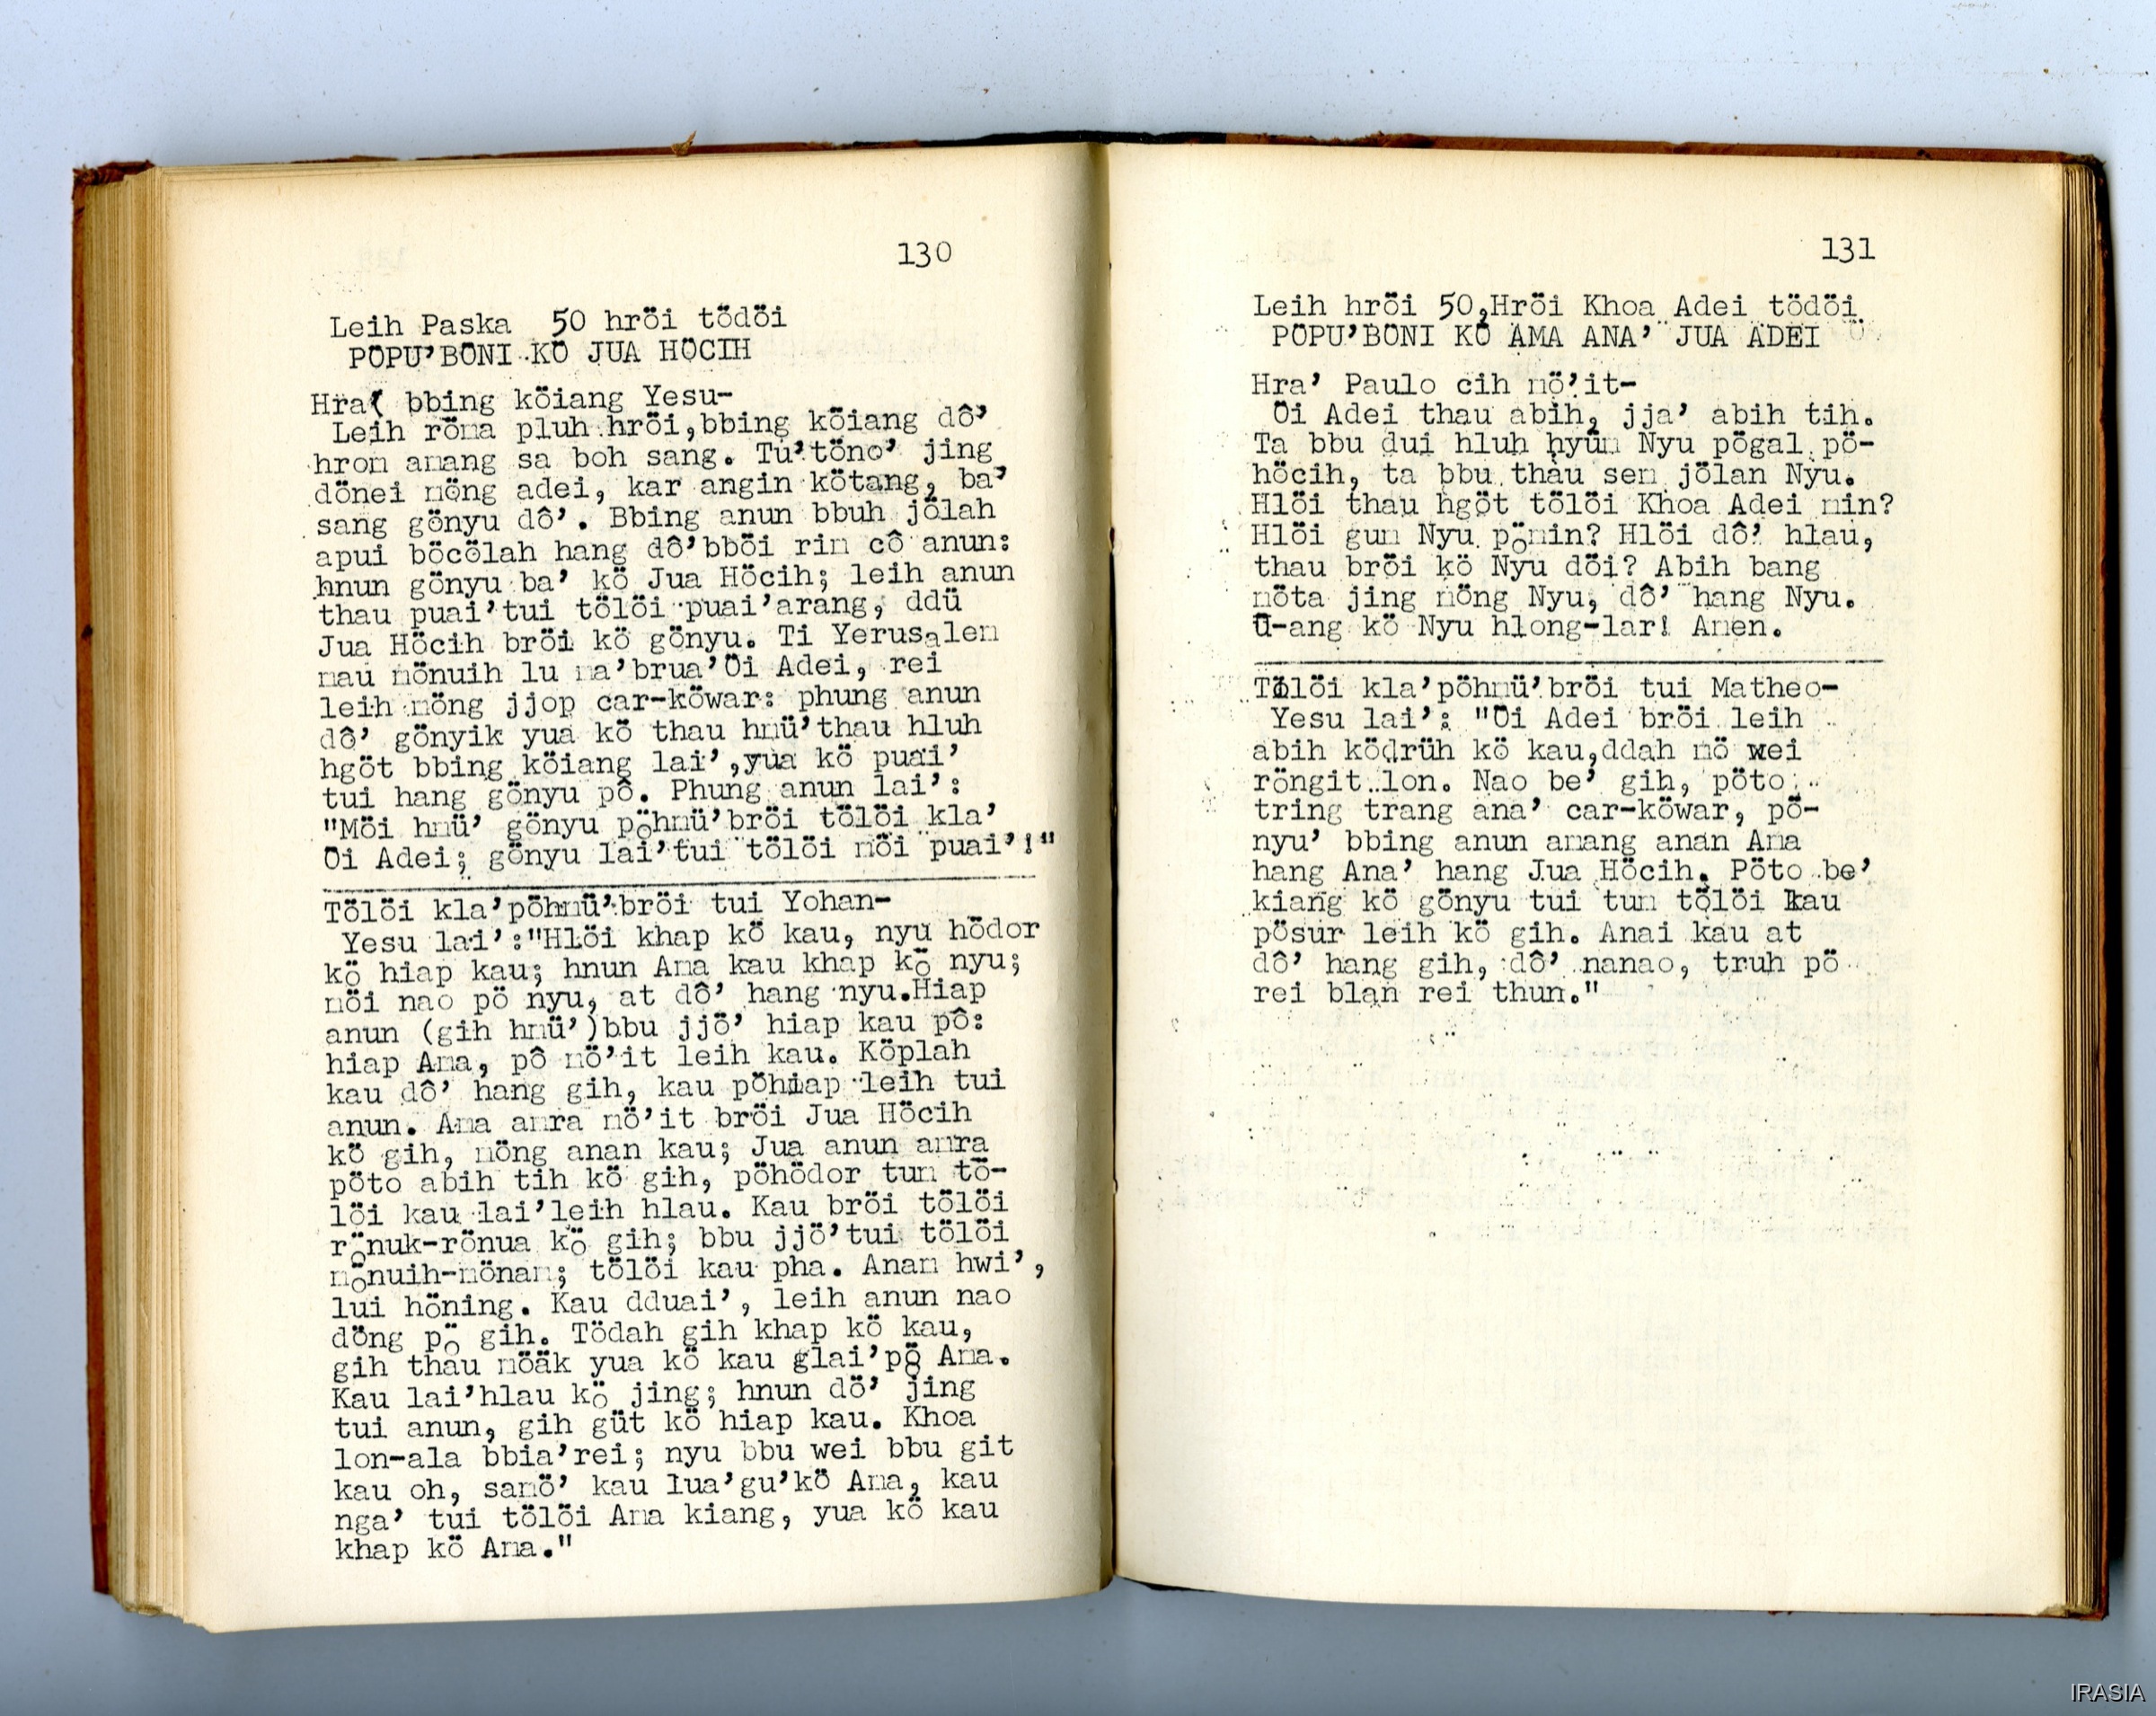 130
Leih Paska 50 hröi tödöi
PÖPU’BÖNI KÖ JUA HÖCIH
Hra’ bbing köiang Yesu-
Leih röma pluh hröi,bbing köiang dô’
hrom amang sa boh sang. Tü’töno’ jing
dönei möng adei, kar angin kötang, ba’
sang gönyu dô’. Bbing anun bbuh jölah
apui böcölah hang dô’bböi rim cô anun:
hnun gönyu ba’ kö Jua Höcih; leih anun
thau puai’tui tölöi puai’arang, ddü
Jua Höcih bröi kö gönyu. Ti Yerusalem
mau mönuih lu ma’brua’Öi Adei, rei
leih möng jjop car-köwar: phung anun
dô’ gönyik yua kö thau hmü’thau hluh
hgöt bbing köiang lai’,yua kö puai’
tui hang gönyu pô. Phung anun lai’:
"Möi hmü’ gönyu pöhmü’bröi tölöi kla’
Öi Adei; gönyu lai’tui tölöi möi puai’!"
Tölöi kla’pöhmü’bröi tui Yohan-
Yesu lai’:"Hlöi khap kö kau, nyu hödor
kö hiap kau; hnun Ama kau khap kö nyu;
möi nao pö nyu, at dô’ hang nyu.Hiap
anun (gih hmü’)bbu jjö’ hiap kau pô:
hiap Ama, pô mö’it leih kau. Köplah
kau dô’ hang gih, kau pöhiap leih tui
anun. Ama amra mö’it bröi Jua Höcih
kö gih, möng anan kau; Jua anun amra
pöto abih tih kö gih, pöhödor tum tö-
löi kau lai’leih hlau. Kau bröi tölöi
rönuk-rönua kö gih; bbu jjö’tui tölöi
mönuih-mönam; tölöi kau pha. Anam hwi’,
lui höning. Kau dduai’, leih anun nao
döng pö gih. Tödah gih khap kö kau,
gih thau möäk yua kö kau glai’pö Ama.
Kau lai’hlau kö jing; hnun dö’ jing
tui anun, gih güt kö hiap kau. Khoa
lon-ala bbia’rei; nyu bbu wei bbu git
kau oh, samö’ kau lua’gu’kö Ama, kau
nga’ tui tölöi Ama kiang, yua kö kau
khap kö Ama."
131
Leih hröi 50,Hröi Khoa Adei tödöi
PÖPU’BÖNI KÖ AMA ANA’ JUA ADEI
Hra’ Paulo cih mö’it-
Öi Adei thau abih, jja’ abih tih.
Ta bbu dui hluh hyüm Nyu pögal pö-
höcih, ta bbu thau sem jölan Nyu.
Hlöi thau hgöt tölöi Khoa Adei min?
Hlöi gum Nyu pömin? Hlöi dô’ hlau,
thau bröi kö Nyu döi? Abih bang
möta jing möng Nyu, dô’ hang Nyu.
Ü-ang kö Nyu hlong-lar! Amen.
Tölöi kla’pöhmü’bröi tui Matheo-
Yesu lai’: "Öi Adei bröi leih
abih ködrüh kö kau,ddah mö wei
röngit lon. Nao be’ gih, pöto
tring trang ana’ car-köwar, pö-
nyu’ bbing anun amang anan Ama
hang Ana’ hang Jua Höcih. Pöto be’
kiang kö gönyu tui tum tölöi kau
pösur leih kö gih. Anai kau at
dô’ hang gih, dô’ nanao, truh pö
rei blan rei thun."
IRASIA